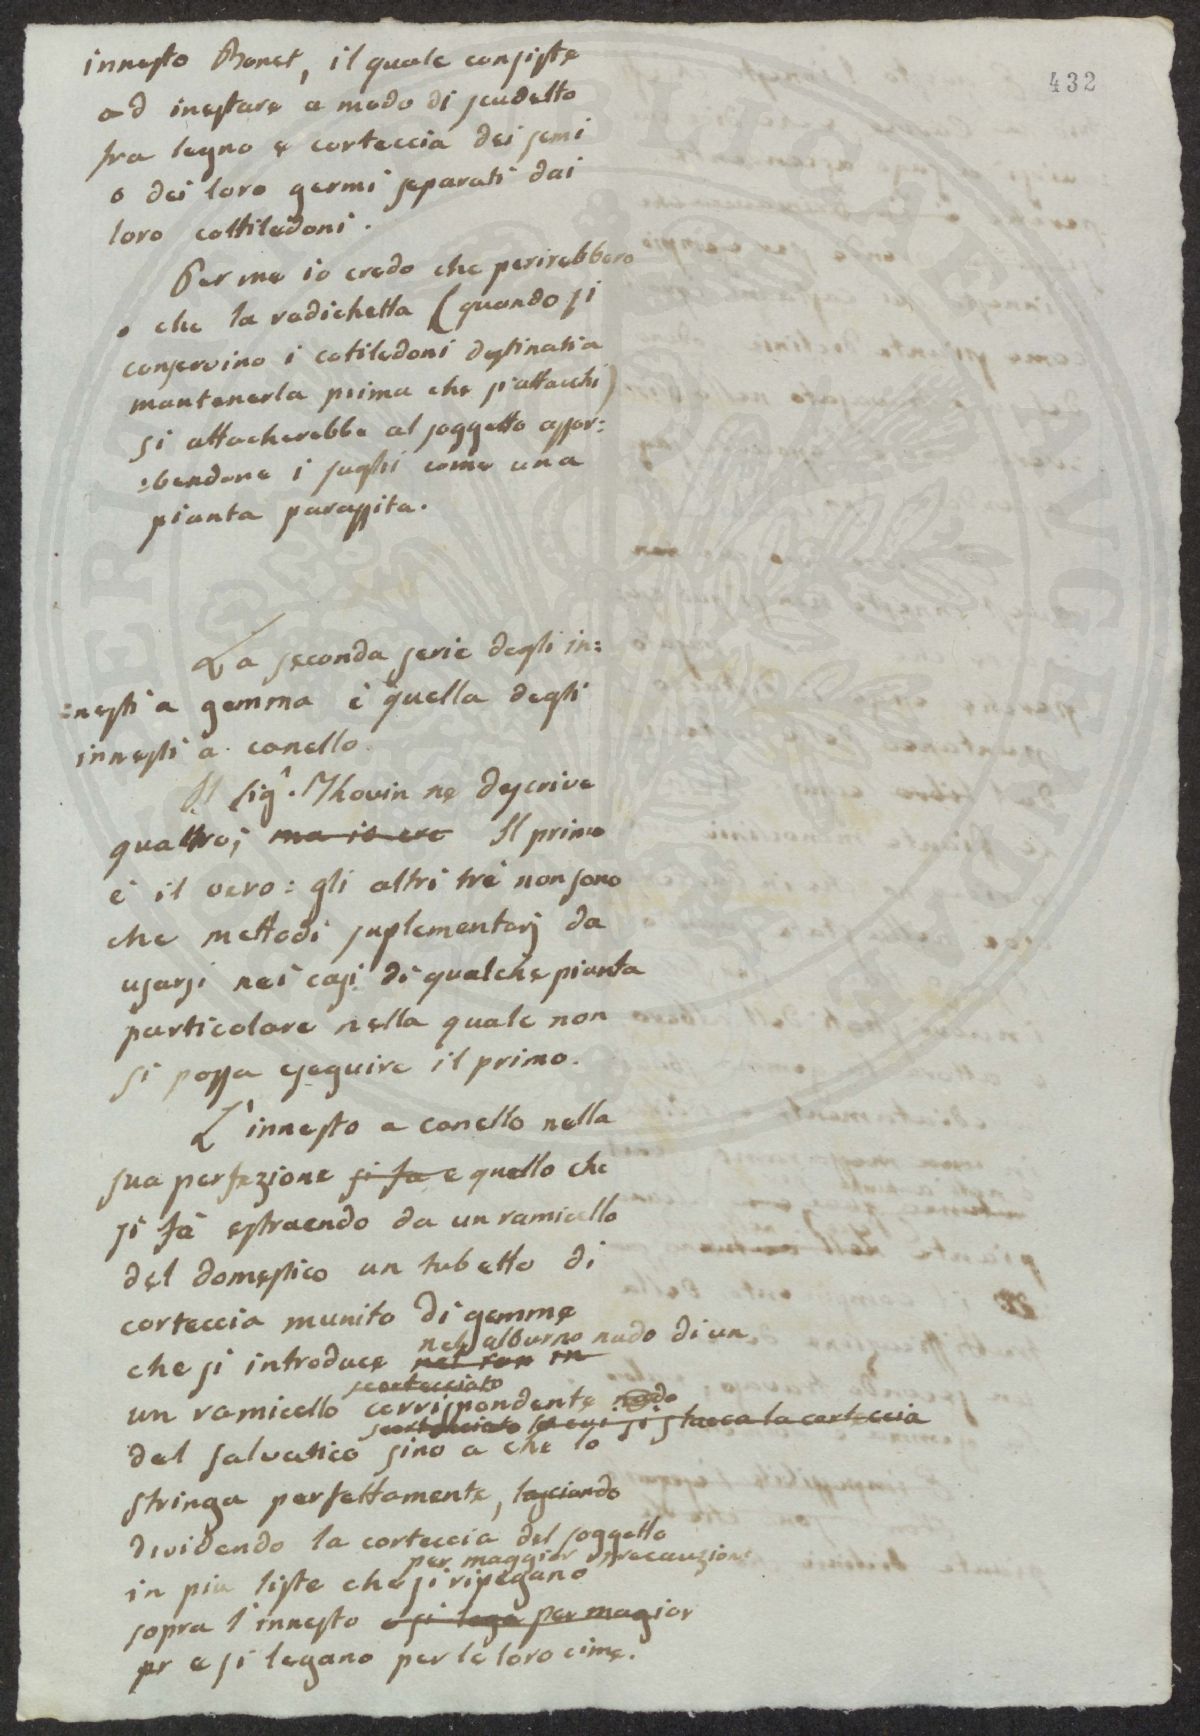 432
innesto Bonet, il quale consiste
ad inestare a modo di scudetto
fra legno e corteccia dei semi
o dei loro germi separati dai
loro cottiledoni.
Per me io credo che perirebbero
o che la radichetta (quando si
conservino i cotiledoni destinati a
mantenerla prima che s'attacchi)
si attacherebbe al soggetto assor:
:bendone i sughi come una
pianta parassita.
La seconda serie degli in:
:nesti a gemma è quella degli
innesti a canello.
Il Sigr. Thouin ne descrive
quattro; ma io cre Il primo
è il vero: gli altri trè non sono
che mettodi suplementarj da
usarsi nei casi di qualche pianta
particolare nella quale non
si possa eseguire il primo.
L'innesto a canello nella
sua perfezione si fa e quello che
si fà estraendo da un ramicello
del domestico un tubetto di
corteccia munito di gemme
nell'alburno nudo di un
che si introduce nel ram in
scortecciato
un ramicello corrispondente nudo
scortecciato la cui si stacca la corteccia
del salvatico sino a che lo
stringa perfettamente, lasciando
dividendo la corteccia del soggetto
per maggior precauzione
in più liste che si ripegano
sopra l'innesto e si lega per magior
pr e si legano per le loro cime.